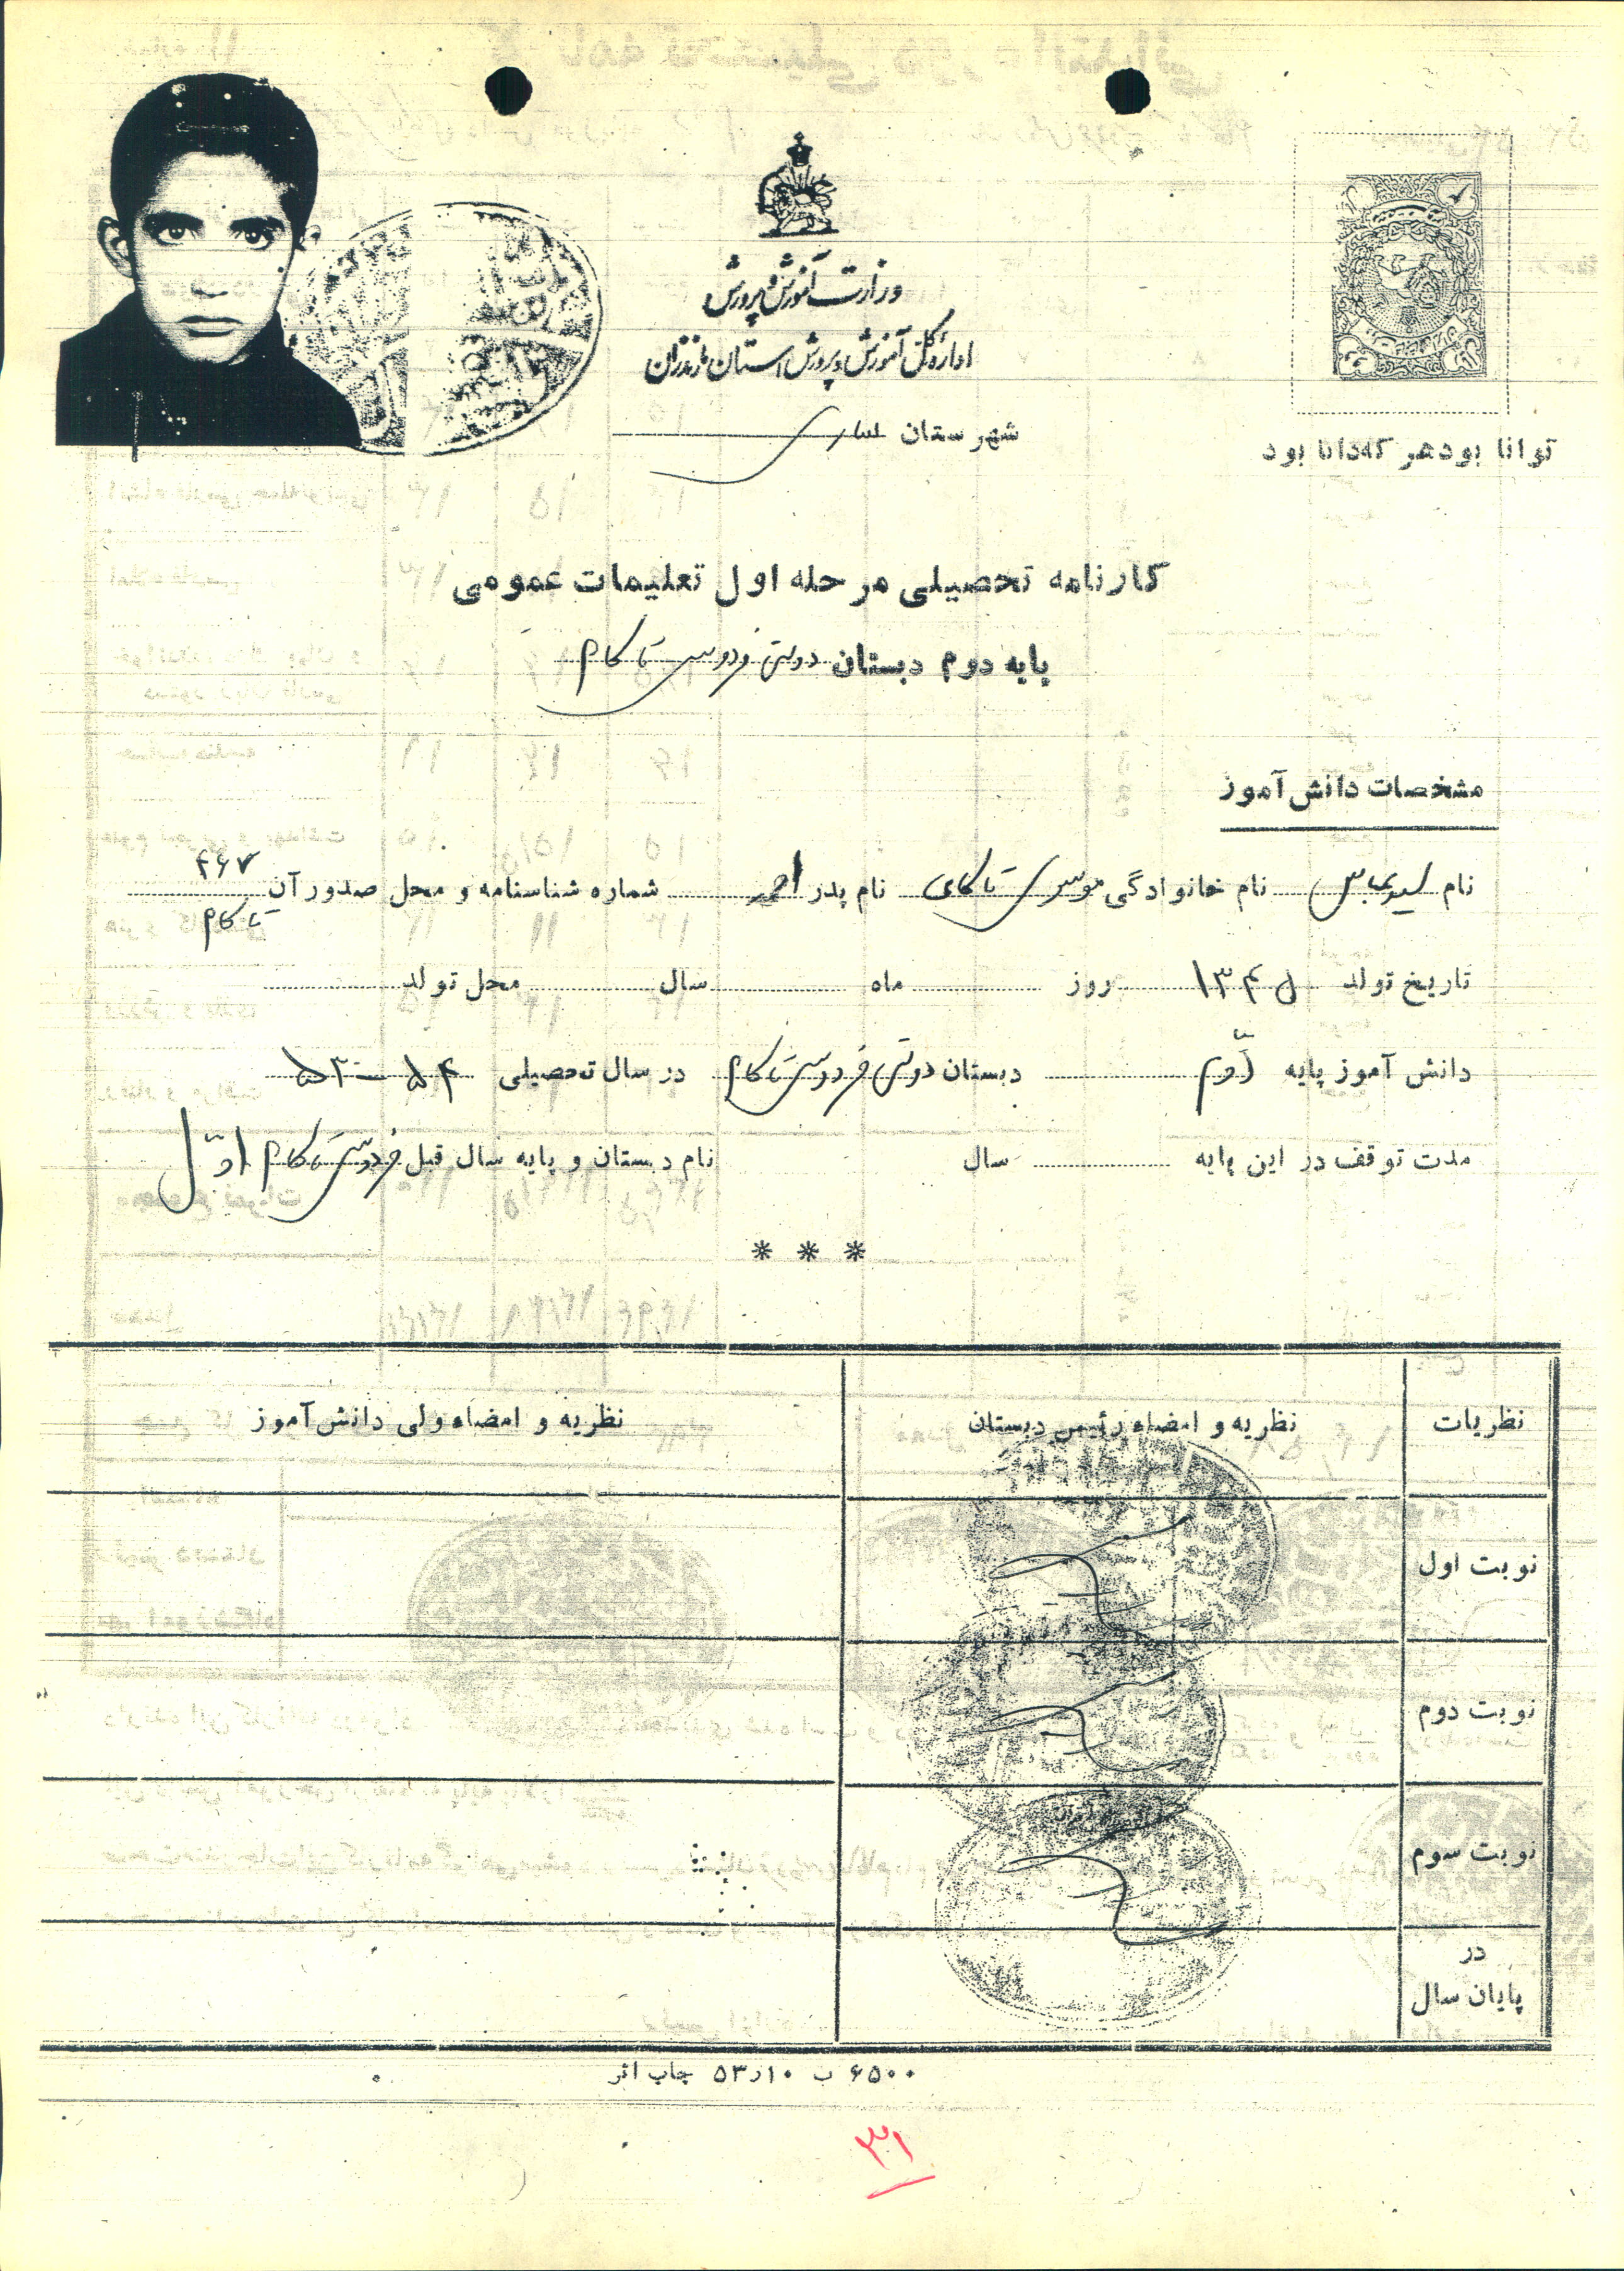 وزارت آموزش و پرورش
اداره کل آموزش و پرورش استان مازندران
شهرستان ساری
توانا بود هر که دانا بود
کارنامه تحصیلی مرحله اول تعلیمات عمومی
پایه دوم دبستان دولتی فردوسی تاکام
مشخصات دانش آموز
نام سیدعباس نام خانوادگی موسوی تاکامی نام پدر احمد شماره شناسنامه و محل صدور آن ۴۶۷ تاکام
تاریخ تولد ۱۳۴۵ روز ماه سال محل تولد
دانش آموز پایه دوّم دبستان دولتی فردوسی تاکام در سال تحصیلی ۵۴ - ۵۳
مدت توقف در این پایه سال نام دبستان و پایه سال قبل فردوسی تاکام اوّل
* * *
نظریات نظریه و امضاء رئیس دبستان نظریه و امضاء ولی دانش آموز
نوبت اول
نوبت دوم
نوبت سوم
در
پایان سال
۶۵۰۰ ب ۱۰ر۵۳ چاپ اثر
۳۱